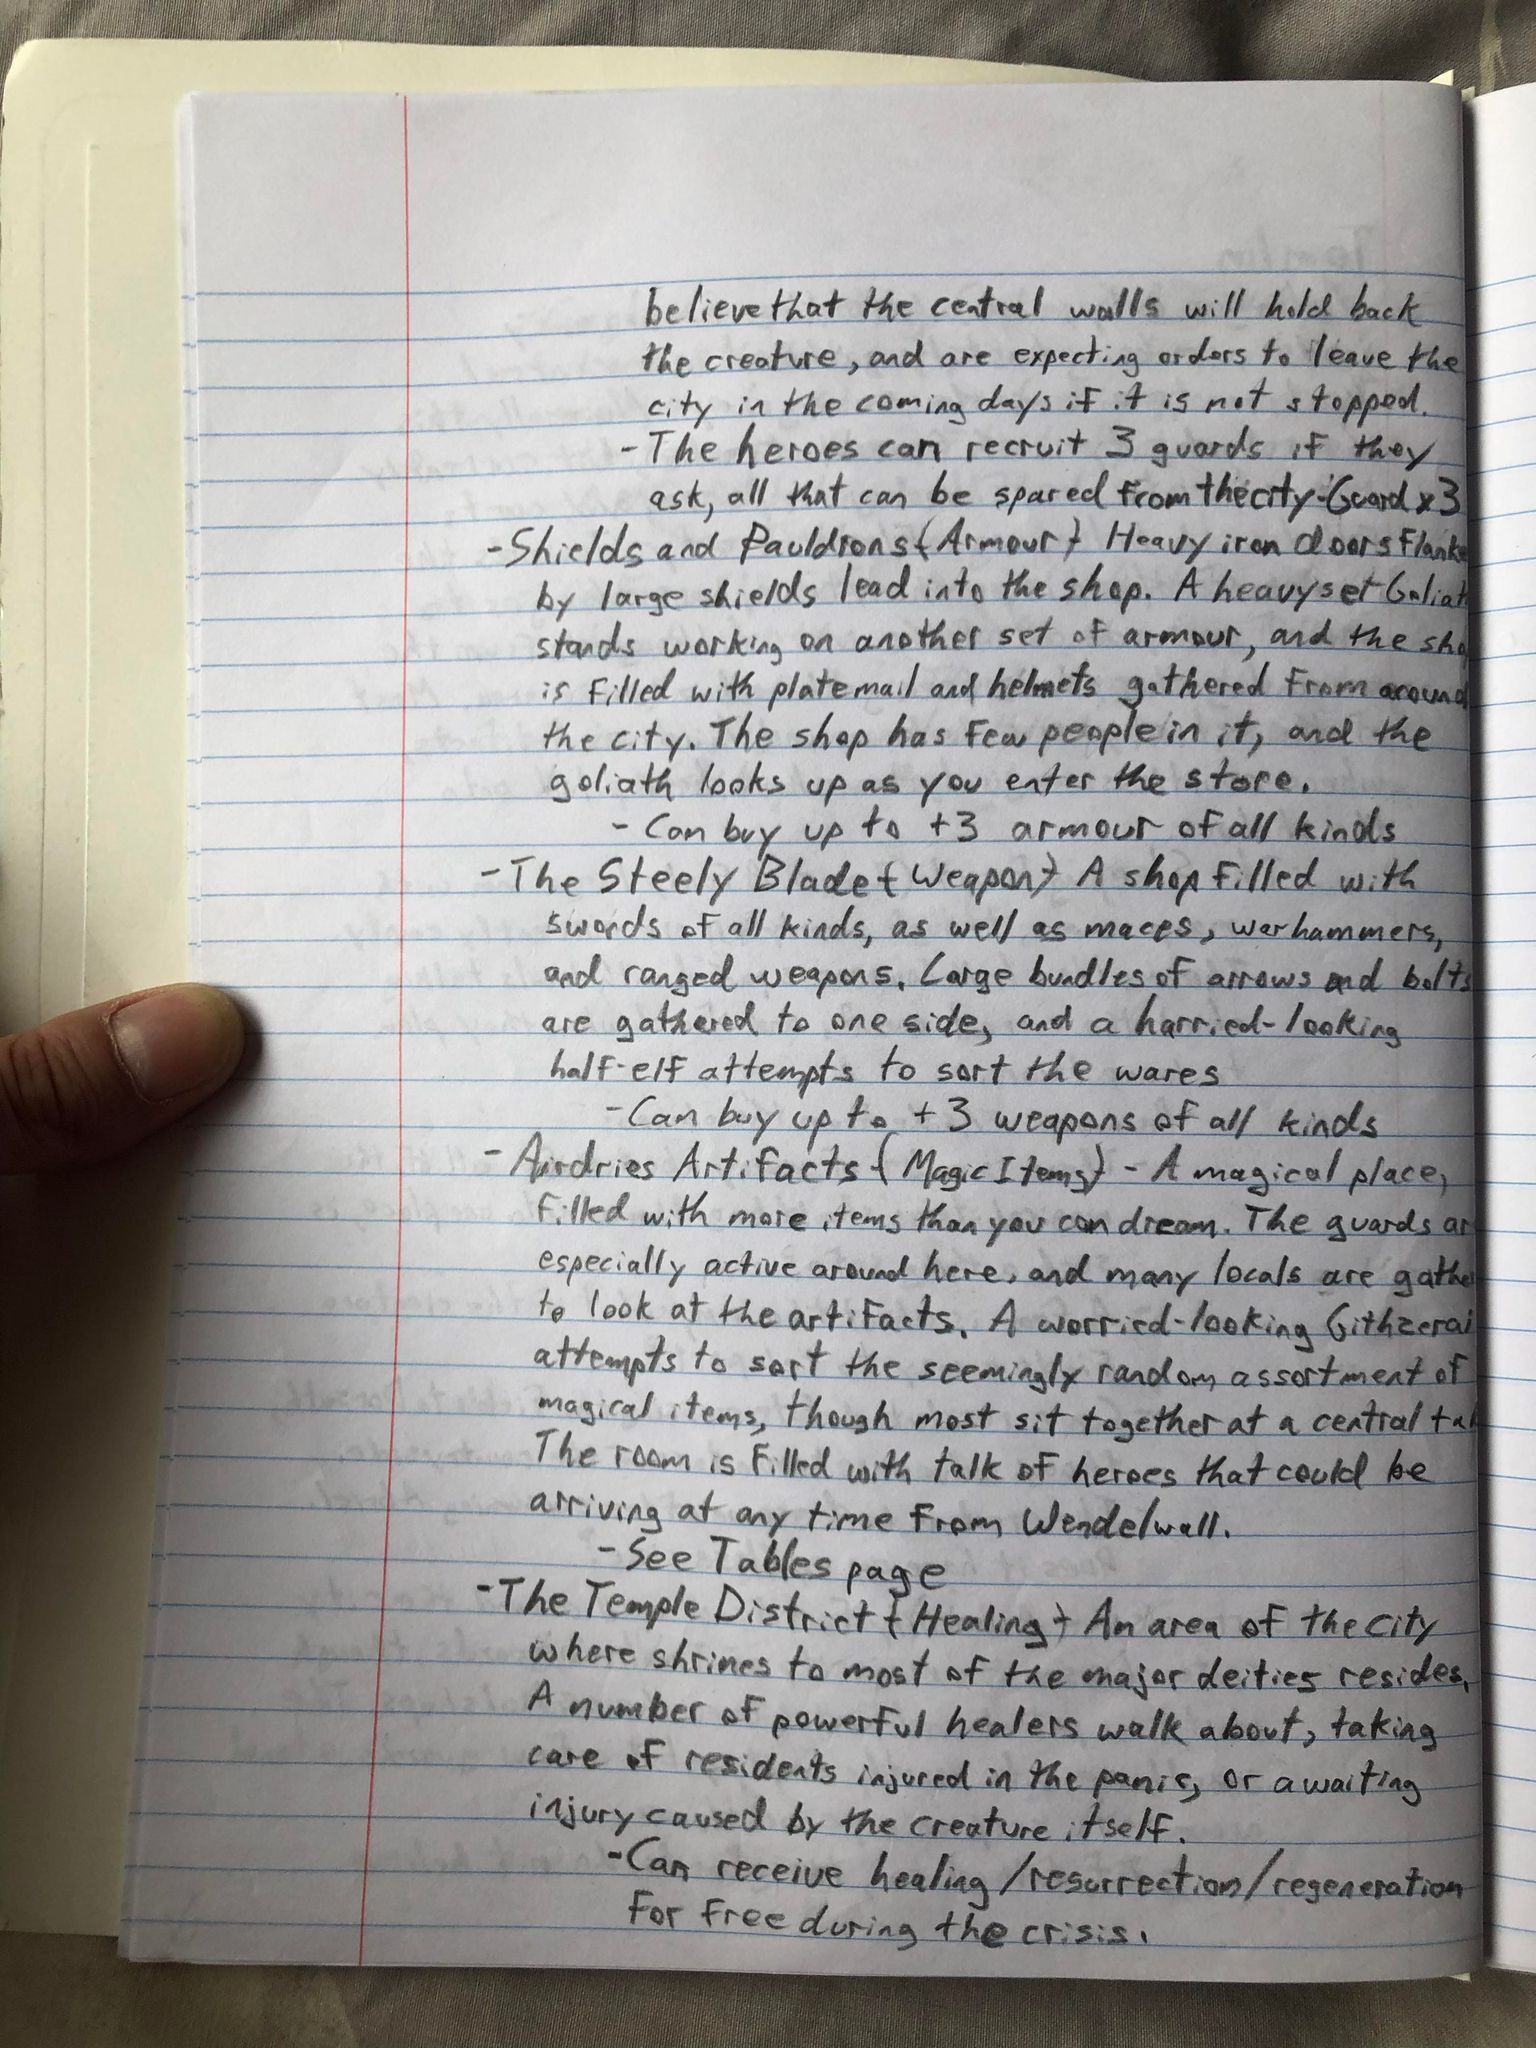 believe that the central walls will hold back
the creature, and are expecting orders to leave the
city in the coming days if it is not stopped.
- The heroes can recruit 3 guards if they
ask, all that can be spared from the city - Guard x 3
- Shields and Pauldrons - (Armour) - Heavy iron doors Flanke
by large shields lead into the shop. A heavyset Goliat
stands working on another set of armour, and the sho
is filled with platemail and helmets gathered from around
the city. The shop has few people in it, and the
goliath looks up as you enter the store.
- Can buy up to +3 armour of all kinds
- The Steely Blade - (Weapon) - A shop filled with
swords of all kinds, as well as maces, warhammers,
and ranged weapons. Large bundles of arrows and bolts
are gathered to one side, and a harried-looking
half-elf attempts to sort the wares
- Can buy up to +3 weapons of all kinds
- Airdries Artifacts - (Magic Items) - A magical place,
filled with more items than you can dream. The guards ar
especially active around here, and many locals are gathe
to look at the artifacts. A worried-looking Githzerai
attempts to sort the seemingly random assortment of
magical items, though most sit together at a central ta
The room is filled with talk of heroes that could be
arriving at any time from Wendelwall.
- See Tables page
- The Temple District - (Healing) - An area of the city
where shrines to most of the major deities resides.
A number of powerful healers walk about, taking
care of residents injured in the panic, or awaiting
injury caused by the creature itself.
- Can receive healing/resurrection/regeneration
for free during the crisis.